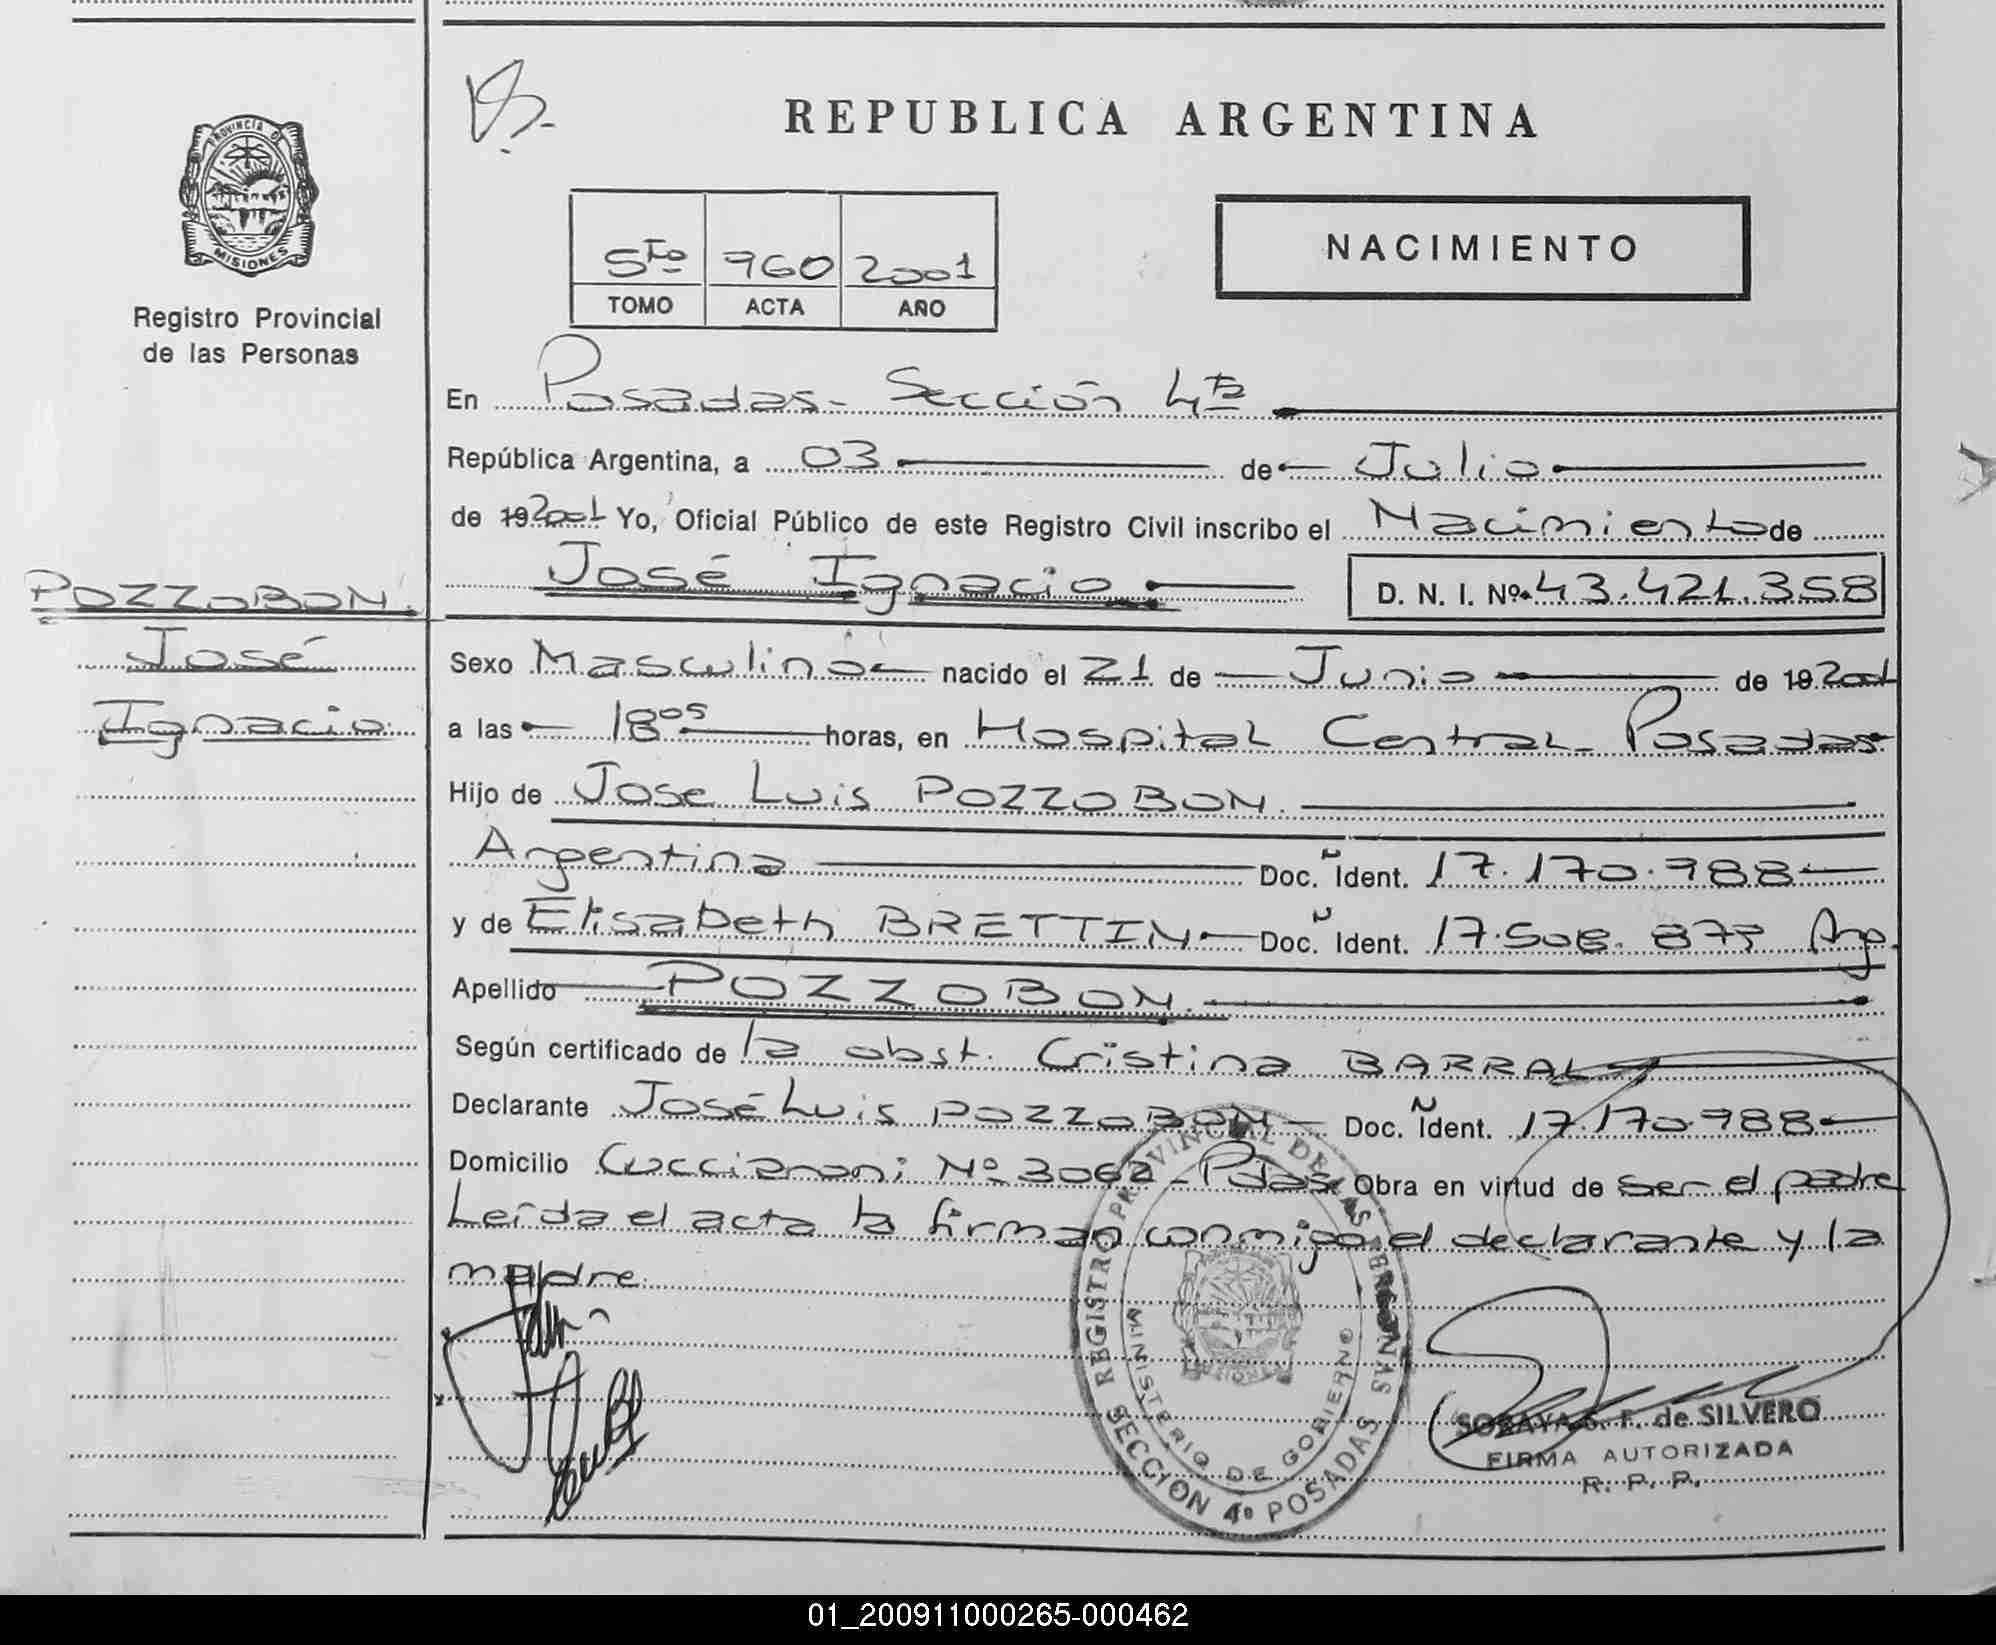 REPUBLICA ARGENTINA
PROVINCIA DE
MISIONES
Registro Provincial
de las Personas
5to 960 2001
TOMO ACTA AÑO
NACIMIENTO
En Posadas - Sección 4ta
República Argentina, a 03 de Julio
de 19 2001 Yo, Oficial Público de este Registro Civil inscribo el Nacimiento de
José Ignacio D. N. I. Nº 43.421.358
POZZOBON.
José
Ignacio
Sexo Masculino nacido el 21 de Junio de 19 2001
a las 18 05 horas, en Hospital Central - Posadas
Hijo de Jose Luis POZZOBON.
Argentina Doc. Ident. 17.170.988
y de Elisabeth BRETTIN Doc. Ident. 17.508.877 Arg.
Apellido POZZOBON.
Según certificado de la obst. Cristina BARRAL
Declarante José Luis POZZOBON Doc. Ident. 17.170.988
Domicilio Nº 3062 - Pdas. Obra en virtud de ser el padre
Leída el acta la firman conmigo el declarante y la
madre.
REGISTRO PROVINCIAL DE LAS PERSONAS
MINISTERIO DE GOBIERNO
SECCION 4º POSADAS
SORAYA S. F. de SILVERO
FIRMA AUTORIZADA
R. P. P.
01_200911000265-000462